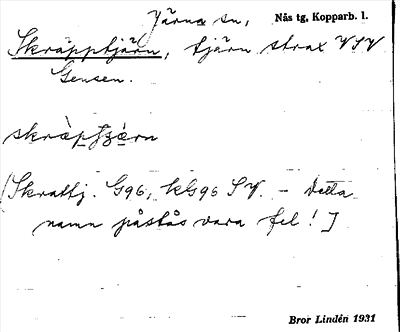 Järna sn, Nås tg, Kopparb. l.
Skräpptjärn, tjärn strax VSV
Gensen.
skräptjärn
[Skrattj. G96, kG96 SV. - Detta
namn påstås vara fel! ]
Bror Lindén 1931